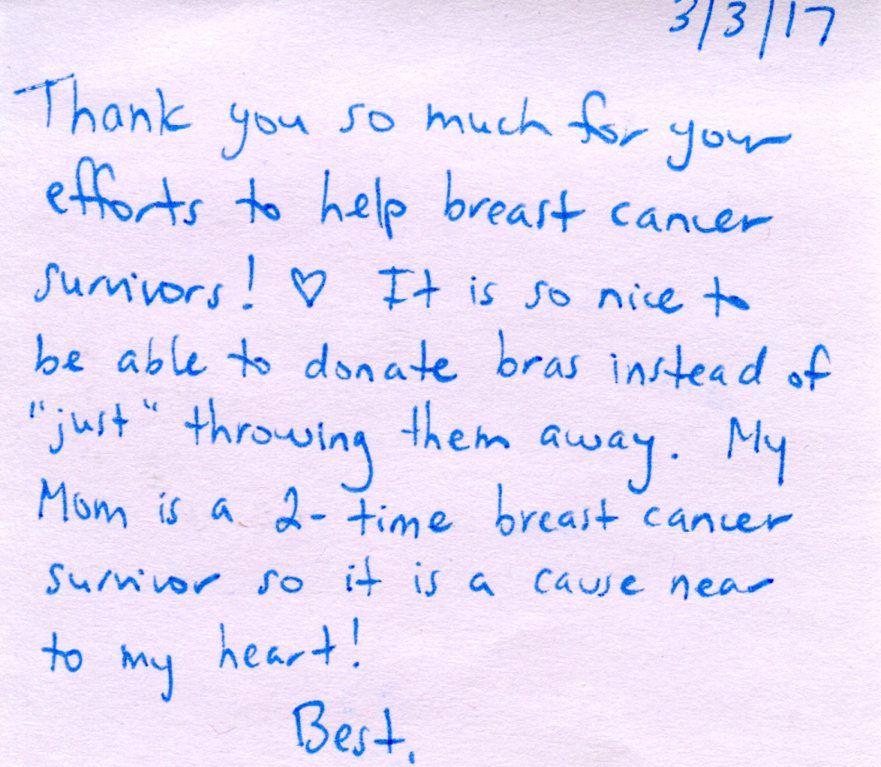 3/3/17
Thank you so much for your
efforts to help breast cancer
survivors! ♡ It is so nice to
be able to donate bras instead of
"just" throwing them away. My
Mom is a 2-time breast cancer
survivor so it is a cause near
to my heart!
Best,